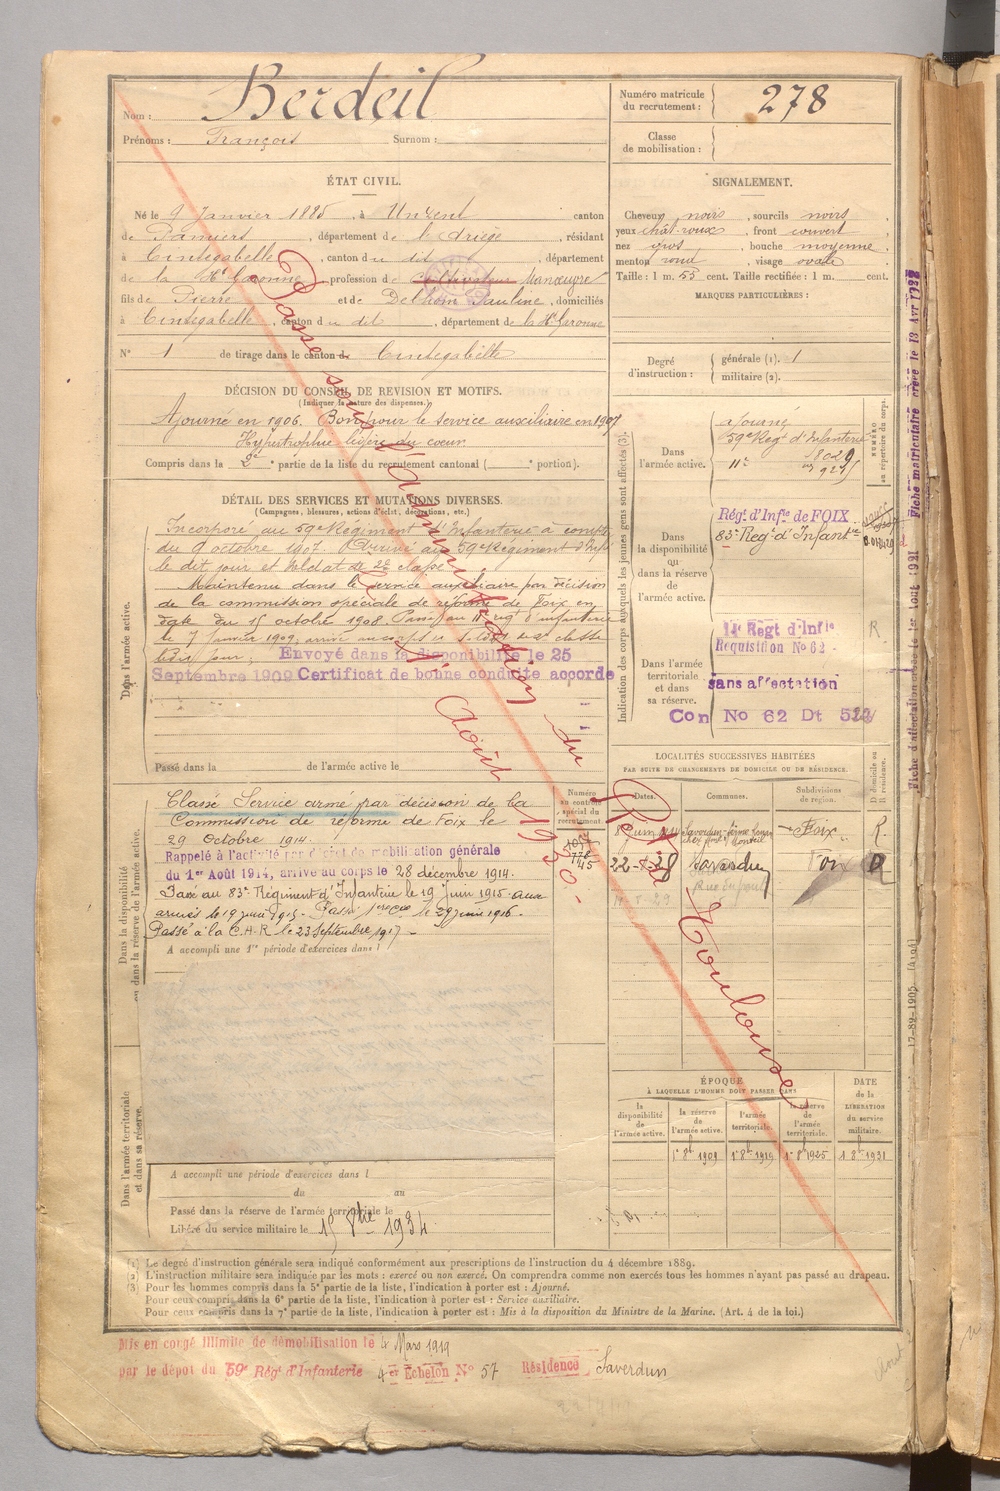 Nom : Berdeil
Prénoms : François Surnom :
Numéro matricule du recrutement : 278
Classe de mobilisation :
ÉTAT CIVIL.
Né le 9 Janvier 1885, à Unzent canton
de Pamiers, département de l'Ariège, résidant
à Cintegabelle, canton du dit, département
de la Hte Garonne, profession de cultivateur Manœuvre
fils de Pierre et de Delhom Pauline, domiciliés
à Cintegabelle, canton du dit, département de la Hte Garonne
N° 1 de tirage dans le canton de Cintegabelle
SIGNALEMENT.
Cheveux noirs, sourcils noirs,
yeux chat-roux, front couvert
nez gros, bouche moyenne,
menton rond, visage ovale
Taille : 1 m. 55 cent. Taille rectifiée : 1 m. cent.
MARQUES PARTICULIÈRES :
Degré d'instruction : générale (1). 1
militaire (2).
DÉCISION DU CONSEIL DE REVISION ET MOTIFS.
(Indiquer la nature des dispenses.)
Ajourné en 1906. Bon pour le service auxiliaire en 1907
Hypertrophie légère du cœur
Compris dans la 2e partie de la liste du recrutement cantonal ( portion).
DÉTAIL DES SERVICES ET MUTATIONS DIVERSES.
(Campagnes, blessures, actions d'éclat, décorations, etc.)
Dans l'armée active.
Incorporé au 59e Régiment d'Infanterie à compter
du 9 octobre 1907. Arrivé au 59e Régiment d'Infie
le dit jour et soldat de 2e classe.
Maintenu dans le service auxiliaire par décision
de la commission spéciale de réforme de Foix en
date du 15 octobre 1908. Passé au 11e régt d'infanterie
le 7 Janvier 1909, arrivé au corps et soldat de 2e classe
le dit jour, Envoyé dans la disponibilité le 25
Septembre 1909 Certificat de bonne conduite accordé
Passé dans la de l'armée active le
Dans la disponibilité ou dans la réserve de l'armée active.
Classé Service armé par décision de la
Commission de réforme de Foix le
29 Octobre 1914.
Rappelé à l'activité par décret de mobilisation générale
du 1er Août 1914, arrivé au corps le 28 décembre 1914.
Passé au 83e Régiment d'Infanterie le 19 Juin 1915 aux
armées le 19 juin 1915.
Passé à la C.H.R. le 23 Septembre 1917
A accompli une 1re période d'exercices dans l
Numéro au contrôle spécial du recrutement.
Dans l'armée territoriale et dans sa réserve.
A accompli une période d'exercices dans l
du au
Passé dans la réserve de l'armée territoriale le
Libéré du service militaire le 15 8bre 1934.
Indication des corps auxquels les jeunes gens sont affectés (3).
NUMÉRO au répertoire du corps.
Dans l'armée active.
ajourné
59e Régt d'Infanterie
11e
Dans la disponibilité ou dans la réserve de l'armée active.
Régt d'Infie de FOIX
83e Régt d'Infantie
Dans l'armée territoriale et dans sa réserve.
14e Regt d'Infie
Requisition No 62
R
sans affectation
Con No 62 Dt
LOCALITÉS SUCCESSIVES HABITÉES
PAR SUITE DE CHANGEMENTS DE DOMICILE OU DE RÉSIDENCE.
Dates. Communes. Subdivisions de région. D domicile ou R résidence.
Foix R.
Saverdun Foix D
ÉPOQUE
À LAQUELLE L'HOMME DOIT PASSER DANS
la disponibilité de l'armée active. la réserve de l'armée active. l'armée territoriale. la réserve de l'armée territoriale.
DATE de la LIBÉRATION du service militaire.
1er 8bre 1909 1er 8bre 1919 1er 8bre 1925 1 8bre 1931
Passé sous l'administration du Rt de Toulouse le 1er Août 1930.
Fiche d'affectation créée le 1er Août 1921 Fiche matriculaire créée le 13 Avr 1927
17-82-1905.
(1) Le degré d'instruction générale sera indiqué conformément aux prescriptions de l'instruction du 4 décembre 1889.
(2) L'instruction militaire sera indiquée par les mots : exercé ou non exercé. On comprendra comme non exercés tous les hommes n'ayant pas passé au drapeau.
(3) Pour les hommes compris dans la 5e partie de la liste, l'indication à porter est : Ajourné.
Pour ceux compris dans la 6e partie de la liste, l'indication à porter est : Service auxiliaire.
Pour ceux compris dans la 7e partie de la liste, l'indication à porter est : Mis à la disposition du Ministre de la Marine. (Art. 4 de la loi.)
Mis en congé illimité de démobilisation le 4 Mars 1919
par le dépôt du 59e Régt d'Infanterie 4er Echelon N° 57 Résidence Saverdun